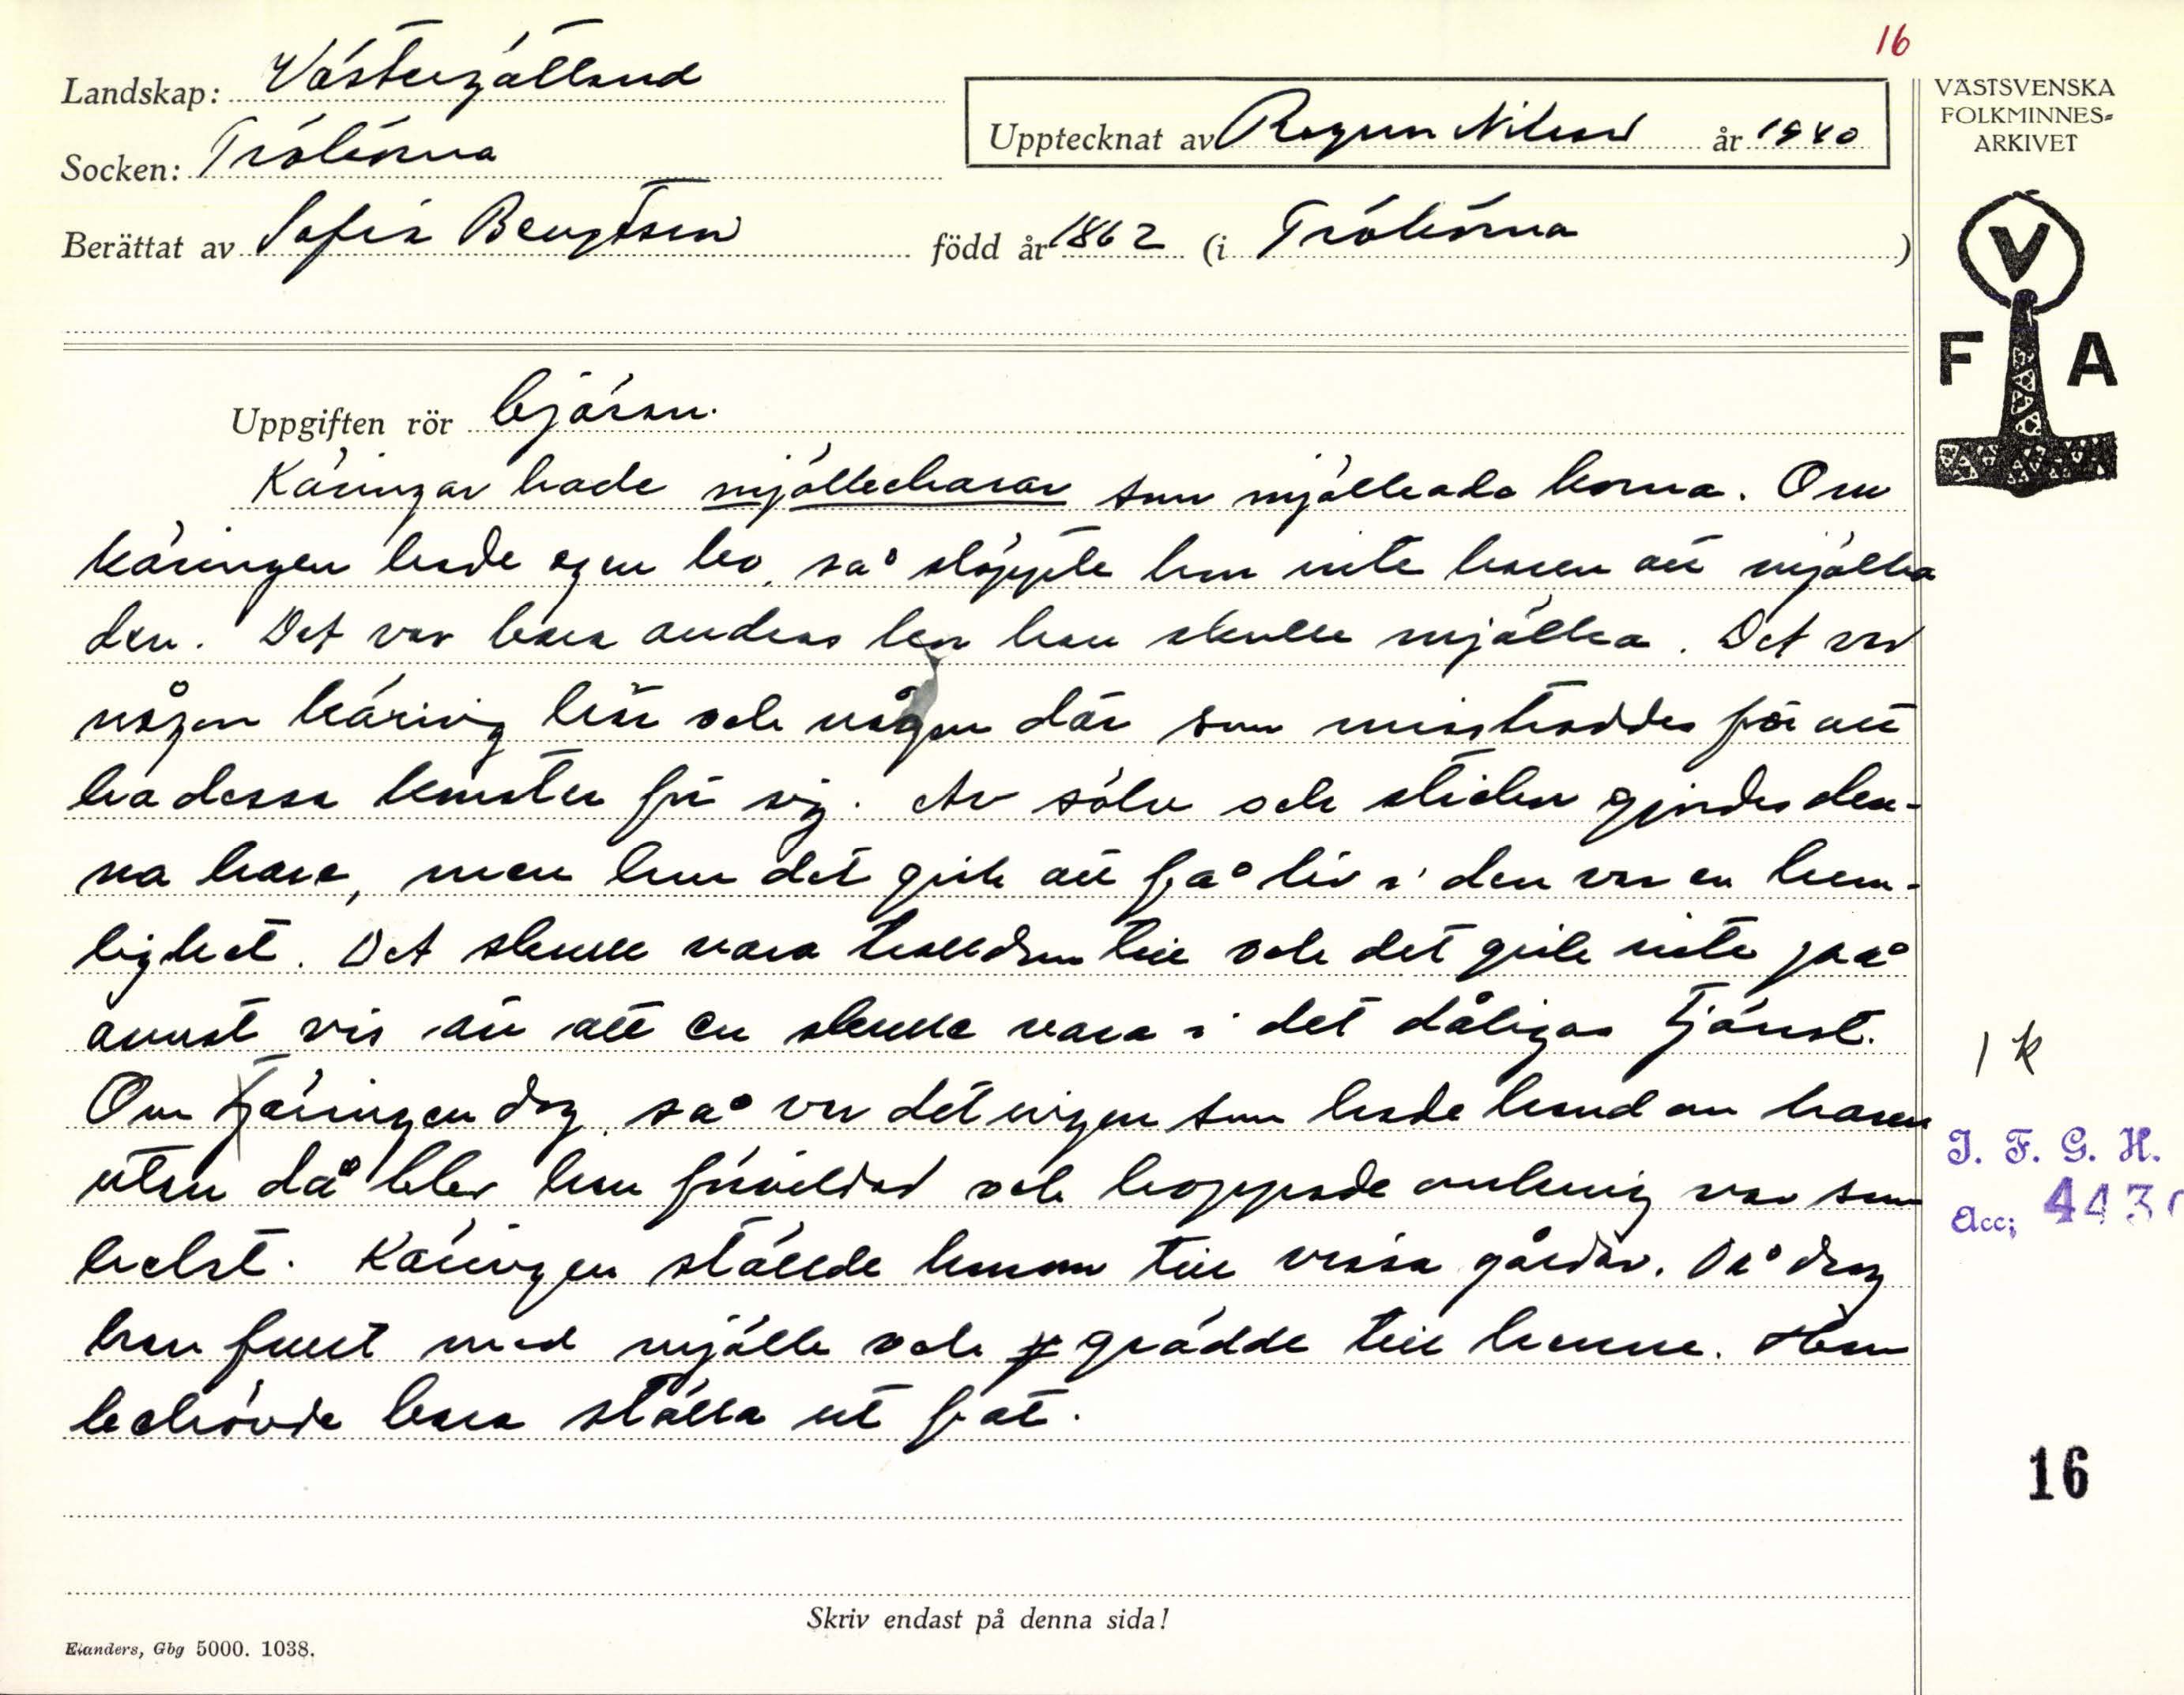 16
Landskap: Västergötland
Socken: Trökörna
Upptecknat av Ragnar Nilsson år 1940
Berättat av Sofia Bengtsson född år 1862 (i Trökörna)
VÄSTSVENSKA
FOLKMINNES=
ARKIVET
V
F A
Uppgiften rör bjäran.
Käringar hade mjölkeharar som mjölkade korna. Om
käringen hade egen ko, så släppte hon inte haren att mjölka
den. Det var bara andras kor han skulle mjölka. Det var
någon käring här och någon där som misstroddes för att
ha dessa konster för sig. Av sölv och stickor gjordes den-
na hare, men hur det gick att få liv i den var en hem-
lighet. Det skulle vara trolldom till och det gick inte på
annat vis än att en skulle vara i det dåligas tjänst.
Om käringen dog, så var det ingen som hade hand om haren
utan då blev han förvildad och hoppade omkring var som
helst. Käringen ställde honom till vissa gårdar. Då drog
han fullt med mjölk och grädde till henne. Hon
behövde bara ställa ut fat.
1 k
I. F. G. H.
Acc; 443
16
Skriv endast på denna sida!
Elanders, Gbg 5000. 1038.